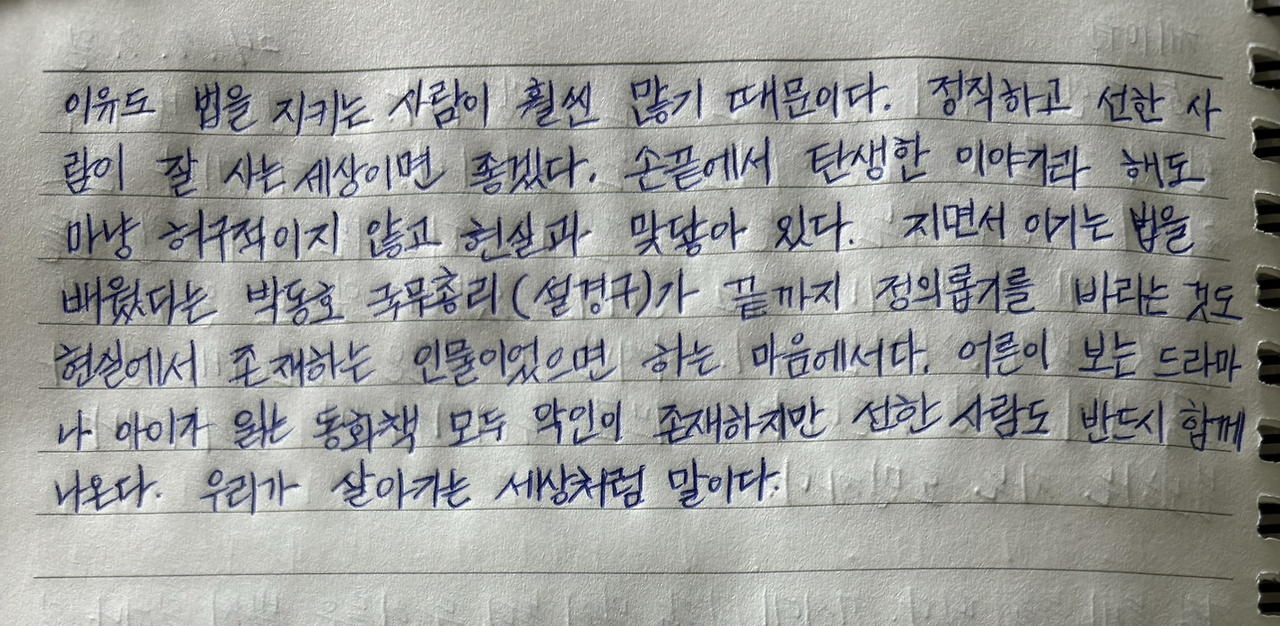 이유도 법을 지키는 사람이 훨씬 많기 때문이다. 정직하고 선한 사
람이 잘 사는 세상이면 좋겠다. 손끝에서 탄생한 이야기라 해도
마냥 허구적이지 않고 현실과 맞닿아 있다. 지면서 이기는 법을
배웠다는 박동호 국무총리(설경구)가 끝까지 정의롭기를 바라는 것도
현실에서 존재하는 인물이었으면 하는 마음에서다. 어른이 보는 드라마
나 아이가 읽는 동화책 모두 악인이 존재하지만 선한 사람도 반드시 함께
나온다. 우리가 살아가는 세상처럼 말이다.